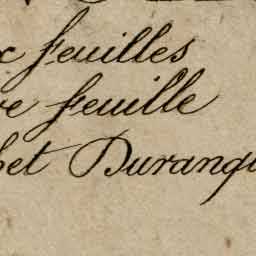 x feuilles
re feuille
bet Durang